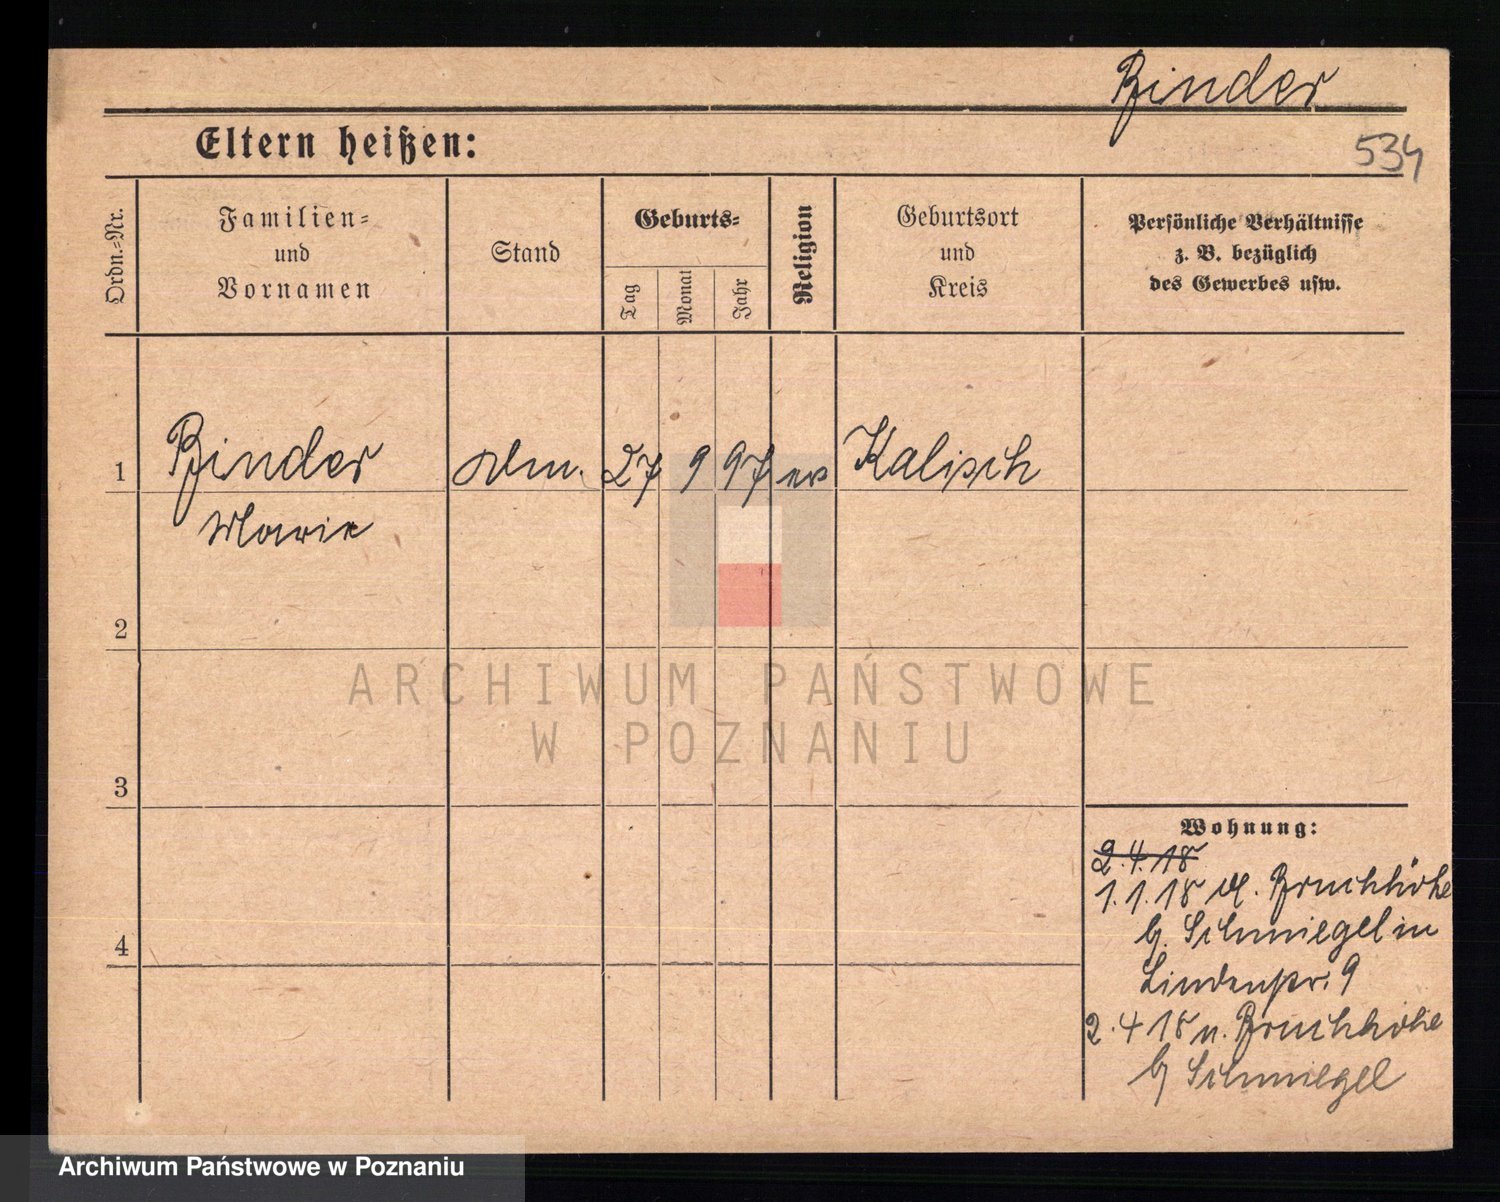 Binder
534
Eltern heißen:
Ordn.-Nr.
Familien-
und
Vornamen
Stand
Geburts-
Tag
Monat
Jahr
Religion
Geburtsort
und
Kreis
Persönliche Verhältnisse
z. B. bezüglich
des Gewerbes usw.
1 Binder 27 9 97 ev Kalisch
Marie
2
3
4
Wohnung:
2.4.18
1.1.18 v. Bruchhöhe
b. Schmiegel in
Lindenstr. 9
2.4 18 n. Bruchhöhe
b Schmiegel
ARCHIWUM PAŃSTWOWE
W POZNANIU
Archiwum Państwowe w Poznaniu